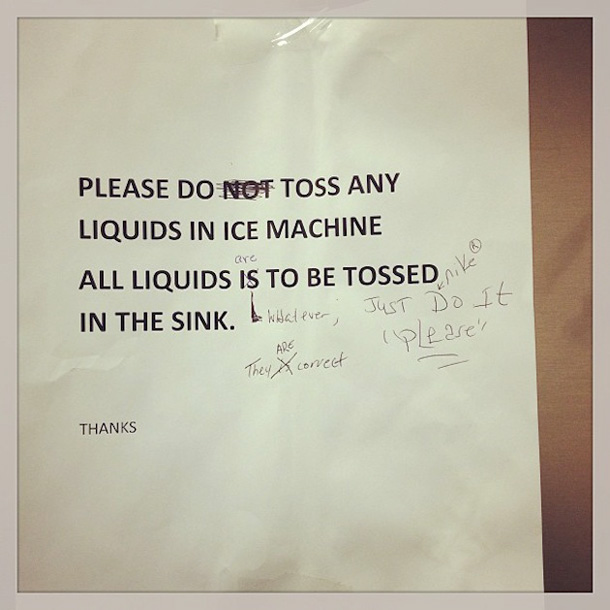 PLEASE DO NOT TOSS ANY
LIQUIDS IN ICE MACHINE
are
ALL LIQUIDS IS TO BE TOSSED
IN THE SINK.
whatever;
nike ®
JUST DO It
"please"
ARE
They is correct
THANKS